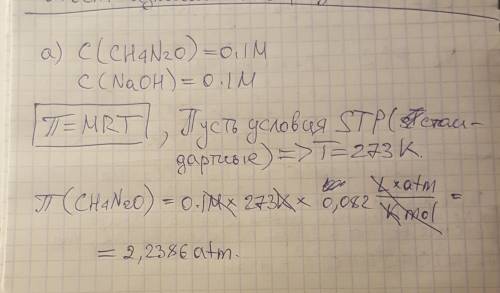 а) C(CH4N2O) = 0.1M
C(NaOH) = 0.1M
π=MRT, Пусть условия STP (стан-
дартные) => T=273 K.
π(CH4N2O) = 0.1M × 273K × 0,082 L×atm/K mol =
= 2,2386 atm.